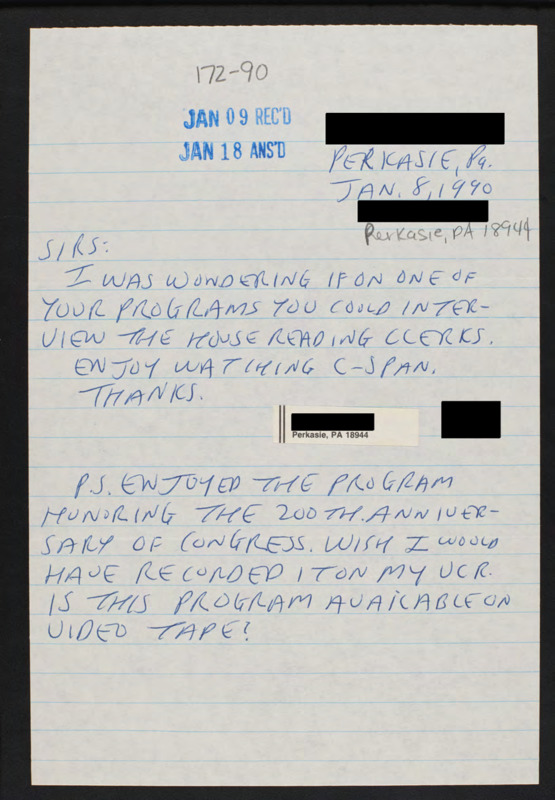 172-90
JAN 09 REC'D
JAN 18 ANS'D
PERKASIE, Pa.
JAN. 8, 1990
Perkasie, PA 18944
SIRS:
I WAS WONDERING IF ON ONE OF
YOUR PROGRAMS YOU COULD INTER-
VIEW THE HOUSE READING CLERKS.
ENJOY WATCHING C-SPAN.
THANKS.
Perkasie, PA 18944
P.S. ENJOYED THE PROGRAM
HONORING THE 200TH. ANNIVER-
SARY OF CONGRESS. WISH I WOULD
HAVE RECORDED IT ON MY VCR.
IS THIS PROGRAM AVAILABLE ON
VIDEO TAPE?